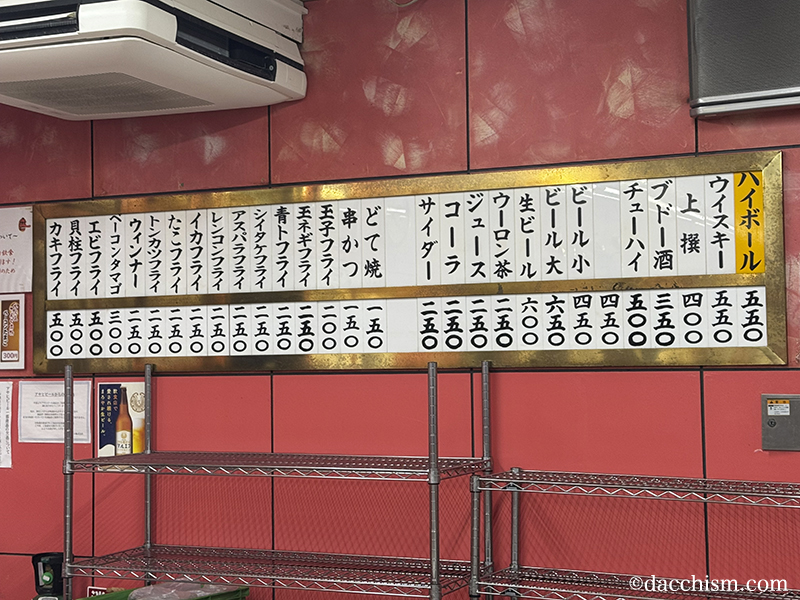 ハイボール
五五〇
ウイスキー
五五〇
上撰
四〇〇
ブドー酒
三五〇
チューハイ
五〇〇
四五〇
ビール小
四五〇
ビール大
六五〇
生ビール
六〇〇
ウーロン茶
二五〇
ジュース
二五〇
コーラ
二五〇
サイダー
二五〇
どて焼
一五〇
串かつ
一五〇
玉子フライ
二〇〇
玉ネギフライ
二五〇
青トフライ
二五〇
シイタケフライ
二五〇
アスパラフライ
二五〇
レンコンフライ
二五〇
イカフライ
二五〇
たこフライ
二五〇
トンカツフライ
二五〇
ウィンナー
二五〇
ベーコンタマゴ
三〇〇
エビフライ
五〇〇
貝柱フライ
五〇〇
カキフライ
五〇〇
300円
©dacchism.com